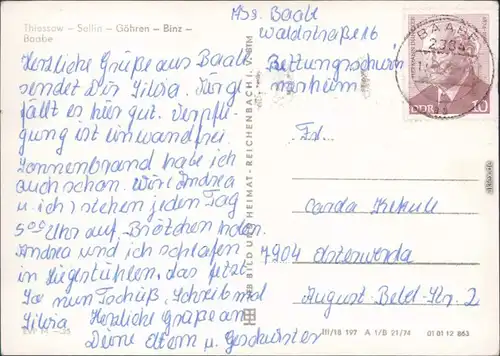 Thiessow – Sellin – Göhren – Binz –
Baabe
Herzliche Grüße aus Baabe
sendet Dir Silvia. Mir ge-
fällt es hier gut. Verpfle-
gung ist einwandfrei.
Sonnenbrand habe ich
auch schon. Wir (Andrea
u. ich) stehen jeden Tag
5⁰⁰ Uhr auf Brötchen holen.
Andrea und ich schlafen
in Liegestühlen, das fetzt.
So nun Tschüß, Schreib mal
Silvia Herzliche Grüße an
Deine Eltern u. Geschwister
Abs. Baabe
Waldstraße 16
Rettungsschwim
merheim
VEB BILD UND HEIMAT · REICHENBACH I. V.
BAABE
DDR 10
Frl.
Carda
7904 Elsterwerda
August-Bebel-Str. 2
III/18 197 A 1/B 21/74 01 01 12 863